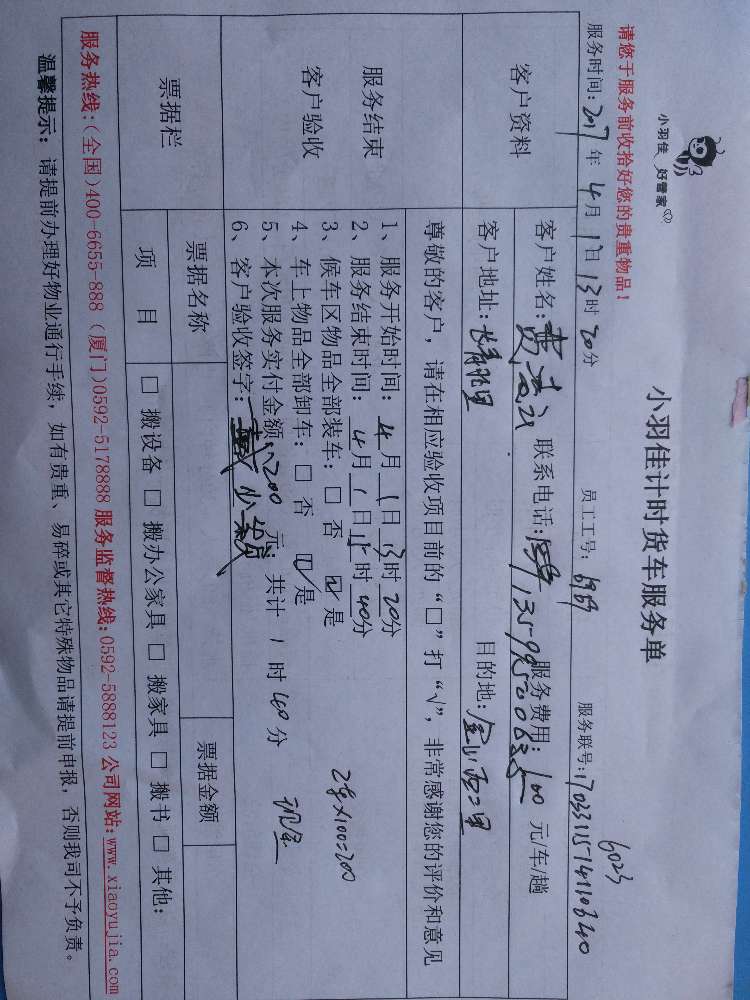 小羽佳 好管家
小羽佳计时货车服务单
请您于服务前收拾好您的贵重物品！
6023
服务时间：2017年4月1日13时20分 员工工号：6989 服务联号：
客户资料
客户姓名： 联系电话： 服务费用：100元/车/趟
客户地址： 目的地：金山西二里
尊敬的客户，请在相应验收项目前的“□”打“√”，非常感谢您的评价和意见
服务结束
客户验收
1、服务开始时间：4月1日13时20分
2、服务结束时间：4月1日15时40分
3、候车区物品全部装车：□ 否 ☑是
4、车上物品全部卸车：□ 否 ☑是
2车×100=200
5、本次服务实付金额200元；共计1时40分 现金
6、客户验收签字：
票据栏
票据名称 票据金额
项 目 □ 搬设备 □ 搬办公家具 □ 搬家具 □ 搬书 □ 其他：
服务热线：(全国)400-6655-888 (厦门)0592-5178888 服务监督热线：0592-5888123 公司网站：www.xiaoyujia.com
温馨提示：请提前办理好物业通行手续，如有贵重、易碎或其它特殊物品请提前申报，否则我司不予负责。